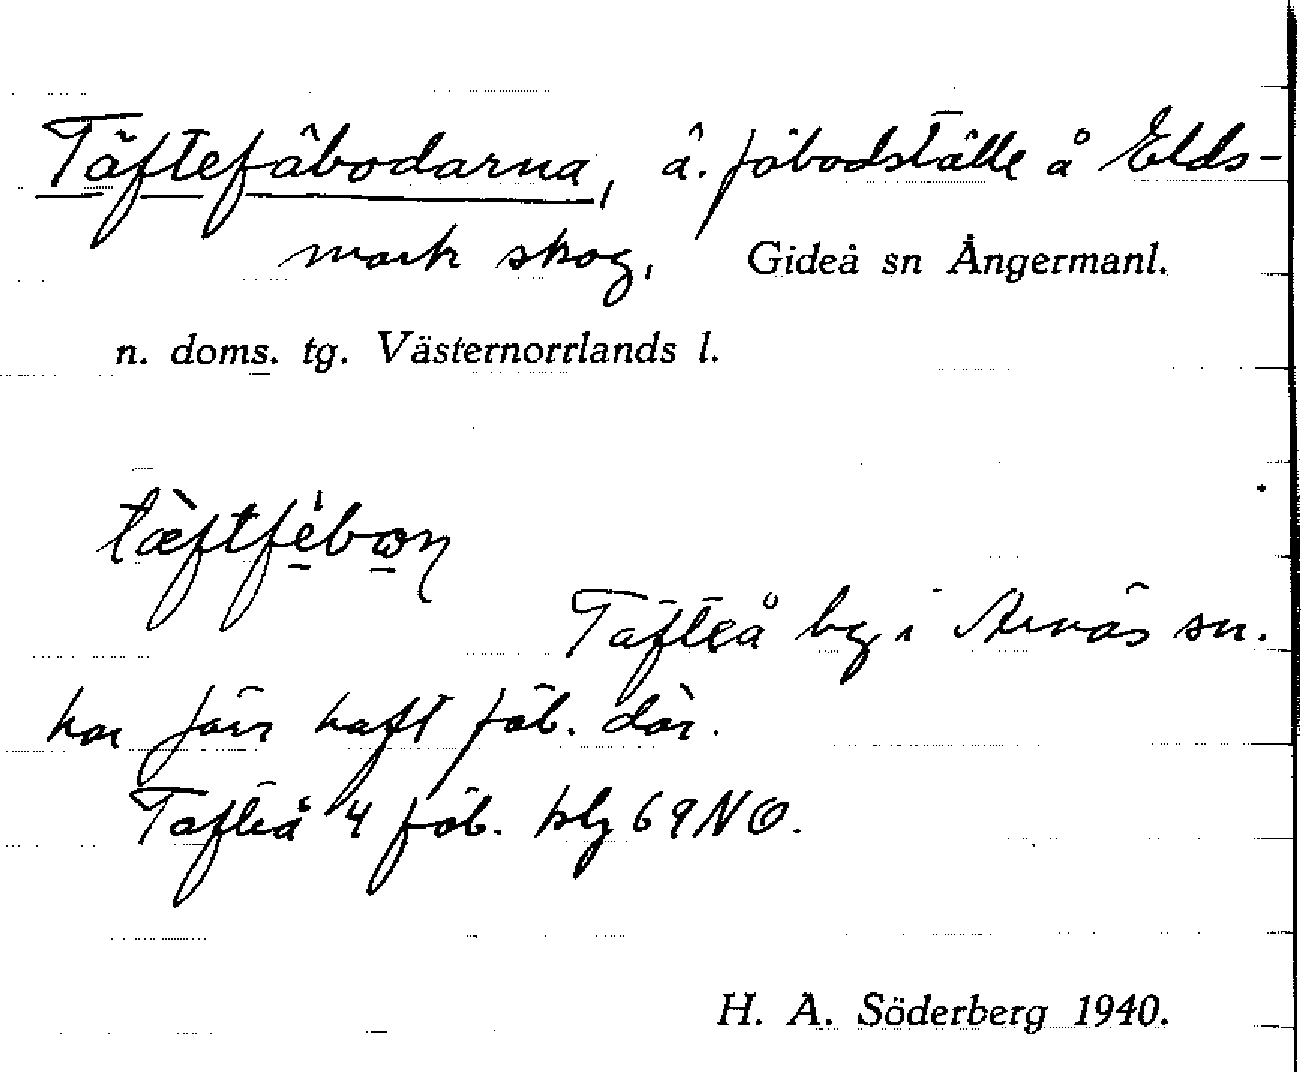 Täftefäbodarna, ä. fäbodställe å Elds-
mark skog, Gideå sn Ångermanl.
n. doms. tg. Västernorrlands l.
tæ̀ftfe̱bω̱n
Täfteå by i Arnäs sn.
har förr haft fäb. där.
Täfteå 4 fäb. blg 69 NO.
H. A. Söderberg 1940.